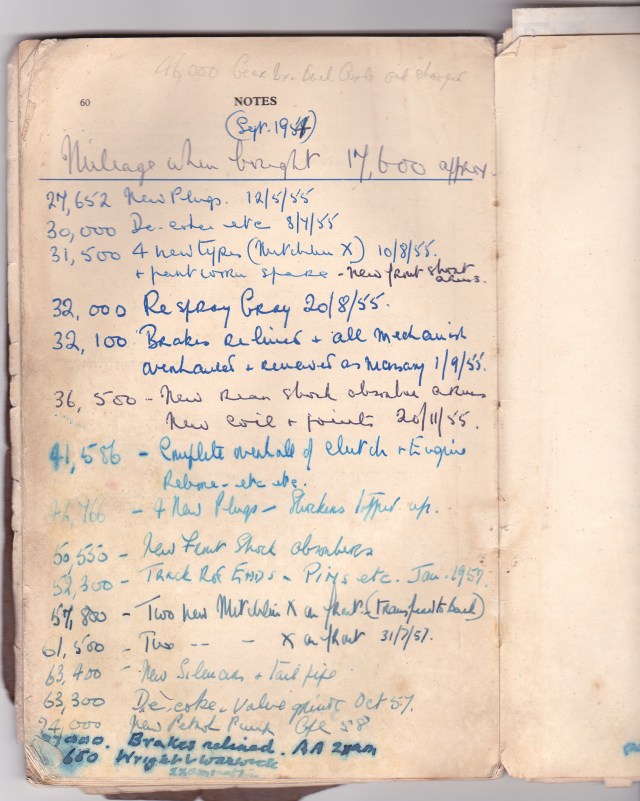 46,000 Gear Box oil changed
60
NOTES
(Sept. 1954)
Mileage when bought 17,600 approx.
27,652 New Plugs. 12/5/55
30,000 De-coke etc 8/7/55
31,500 4 new tyres (Mitchlin X) 10/8/55.
+ part worn spare - New front shock arms.
32,000 Respray Gray 20/8/55.
32,100 Brakes relined + all mechanism
overhauled + renewed as necessary 1/9/55.
36,500 - New Rear shock absorber arms
New coil + points 20/11/55.
41,586 - Complete overhall of clutch + Engine
Rebore - etc etc.
- 4 New Plugs - Shockers topped up.
50,550 - New Front Shock absorbers
52,300 - Track Rod Ends - Pins etc. Jan. 1957.
57,800 - Two new Mitchlin X on front - (transfer to back)
61,500 - Two -- - X on front 31/7/57.
63,400 New Silencers + tail pipe
63,300 De-coke - Valve grind Oct 57.
New Petrol Pump 58
Brakes relined. AA exam
650 Wright Warwick